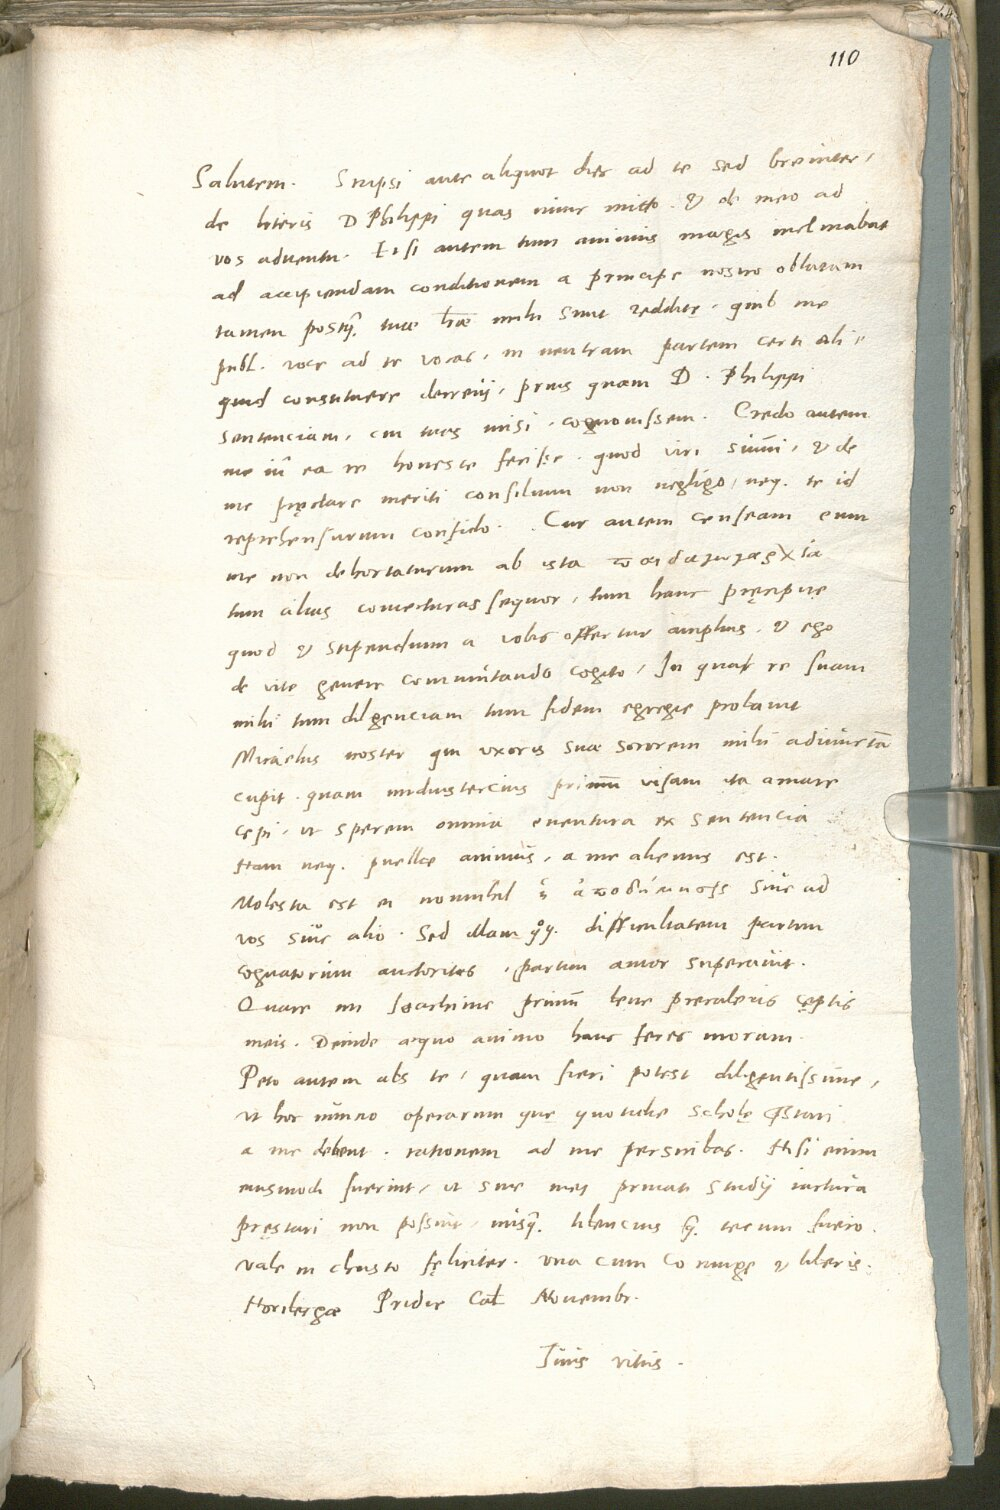 110
Salutem. Scripsi ante aliquot dies ad te sed breuiter,
de literis D Philippi quas nunc mitto. & de meo ad
vos aduentu. Etsi autem tum animus magis inclinabat
ad accipiendam conditionem a principe nostro oblatam
tamen postq̃. tuæ l̃ræ mihi sunt redditę, quib me
publ. voce ad te vocas, in neutram partem certi ali„
quid constituere decreuj, prius quam D. Philippi
sentenciam, cui tuas misi, cognouissem. Credo autem
me iñ ea re honeste fecisse. quod viri sum̃i, & de
me pręclare meriti consilium non negligo, neq. te id
reprehensurum confido. Cur autem censeam eum
me non dehortaturum ab ista παιδαγωγαρχία
tum alias coniecturas sequor, tum hanc pręcipue
quod & stipendium a vobis offertur amplius, & ego
de vite genere commutando cogito, In qua re suam
mihi tum diligenciam tum fidem egregie probauit
Micaelus noster qui vxoris suæ sororem mihi adiunctã
cupit. quam nudiustercius primũ visam ita amare
cępi, ut sperem omnia euentura ex sentencia
Nam neq. puellæ animus, a me alienus est.
Molesta est ei nonnihil ἡ ἀποδήμησις siue ad
vos siue alio. Sed illam qͦq. difficultatem partim
cognatorum auctoritas, partim amor superauit.
Quare mi Ioachime primũ bene precaberis cęptis
meis. Deinde æquo animo hanc feres moram.
Peto autem abs te, quam fieri potest diligentissime,
ut hoc nuncio operarum quę quotidie scholę p̃stari
a me debent. rationem ad me perscribas. Nisi enim
eiusmodi fuerint, ut sine mej priuati studij iactura
pręstari non possint, nusq̃. libencius q̃. tecum fuero.
Vale in christo fęliciter. vna cum Coniugę & liberis.
Noribergæ Pridie Cal Nouembr.
Tuus vitus.